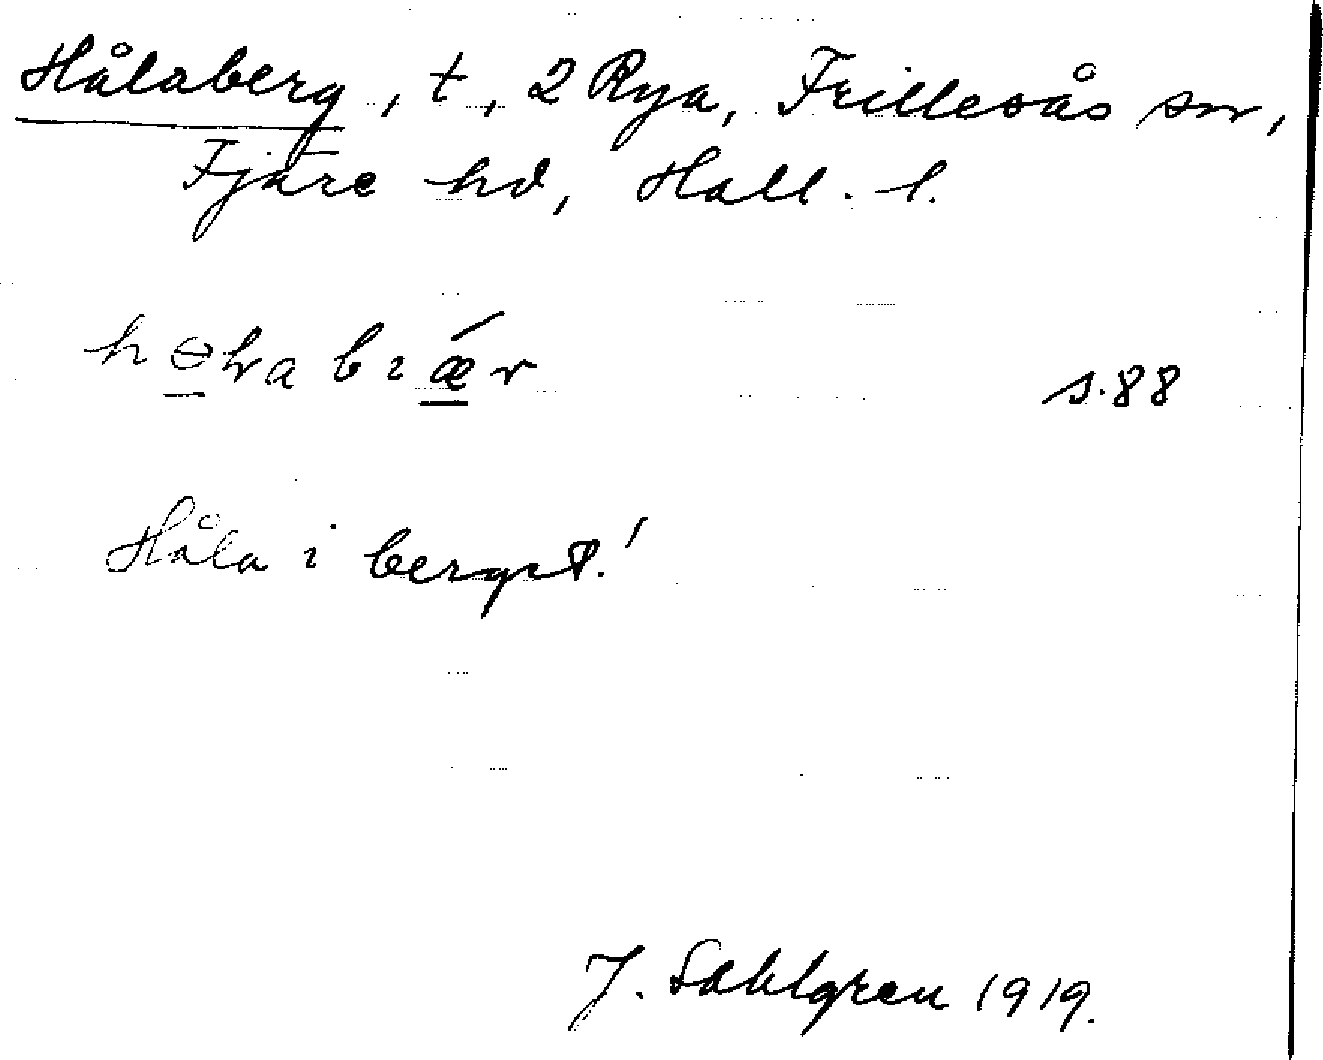 Hålaberg, t, 2 Rya, Frillesås sn,
Fjäre hd, Hall. l.
s.88
Håla i berget!
J. Sahlgren 1919.